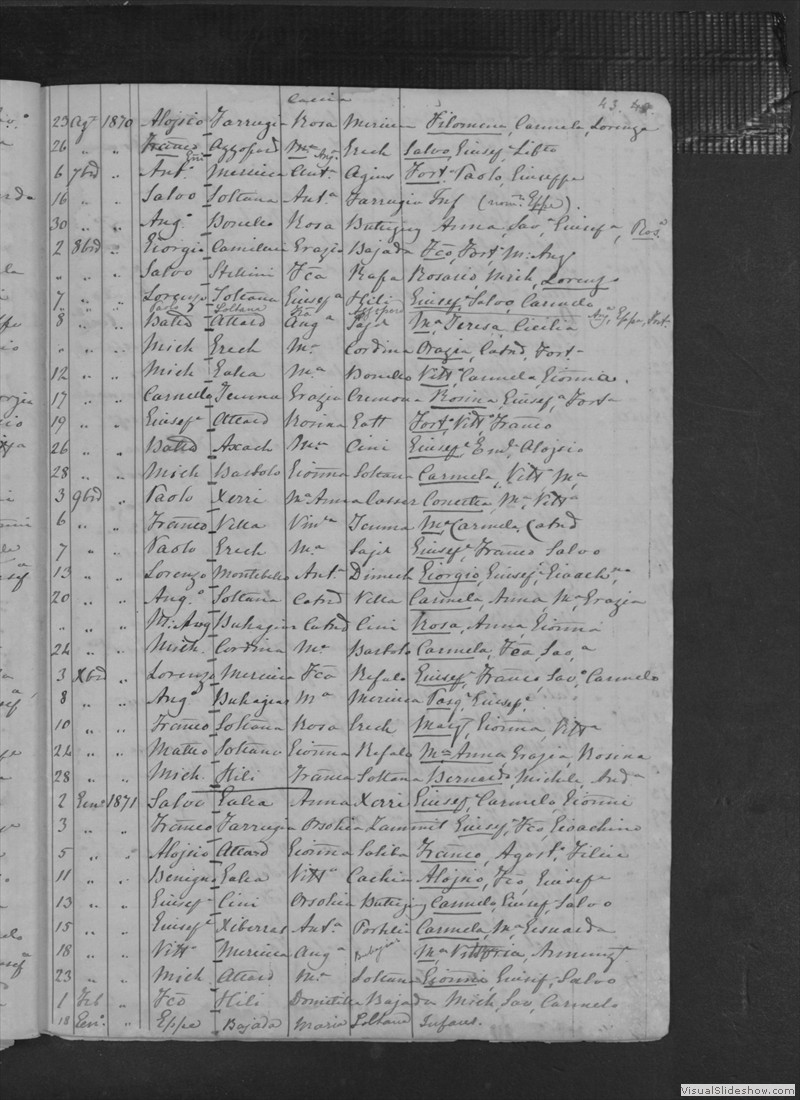 43. 48
Caccia
23 Ag.º 1870 Alojsio Farrugia Rosa Mercieca Filomena, Carmela, Lorenza
26 " " Franco Azzopard M.ª Ang.ª Grech Salvo, Giusef.
6 7bre " Ant.º Mercieca Cent.ª Agius Fort.º Paolo, Giuseppe
16 " " Salvo Soltana Ant.ª Farrugia Inf (nom. Eppe).
30 " " Ang.º Bonello Rosa Buttigieg Anna, Sav.ª Giusef.ª, Ros.ª
2 8bre " Giorgio Camilleri Grazia Bajada Fco, Fort.º M: Ang
" " " Salvo Fca Rafa Rosario, Mich, Lorenzo
7 " " Lorenzo Soltana Giusef.ª Hili Giusef, Salvo, Carmelo
Paolo Soltana Azzopard Eppe, Ant.
8 " " Batta Attard Ang.ª Sajd M.ª Teresa, Cicilia
" " " Mich Grech M.ª Cordina Grazia, Catnd, Fort.
12 " " Mich Galea M.ª Bonello Vitt, Carmela, Gionna.
17 " " Carmelo Grazia Cremona Rosina, Giusef.ª Fort.ª
19 " " Giusef.º Attard Rosina Gatt Fort.º Vitt.º Franco
26 " " Batta Axach M.ª Cini Giusef.ª Em.ª Alojsio
28 " " Mich Bartolo Gionna Soltana Carmela, Vitt.ª M.ª
3 9bre " Paolo Xerri M.ª Anna Casser Concetta, M.ª Vitt.ª
6 " " Franco Vella Vin.ª M.ª Carmela, Catnd
7 " " Paolo Grech M.ª Sajd Giusef.º Franco Salvo
13 " " Lorenzo Montebello Ant.ª Dimech Giorgio, Giusef.º, Gioach.no
20 " " Ang.º Soltana Catnd Vella Carmela, Anna, M.ª Grazia
" " " M: Ang Buhagiar Catnd Cini Rosa, Anna, Gionna
24 " " Mich. Cordina M.ª Bartolo Carmela, Fca, Sav.ª
3 Xbre " Lorenzo Mercieca Fca Refalo Giusef, Franco, Sav.º, Carmelo
8 " " Ang.º Buhagiar M.ª Mercieca Pasq.º Giusef.º
10 " " Franco Soltana Rosa Grech Marg.ª, Gionna, Vitt.ª
24 " " Matteo Soltana Gionna Refalo M.ª Anna, Grazia, Rosina
28 " " Mich. Hili Franca Soltana Bernardo, Michele, And.ª
2 Gen.º 1871 Salvo Galea Anna Xerri Giusef, Carmelo, Gionni
3 " " Franco Farrugia Orsolia Zammit Giusef, Fco, Gioachino
5 " " Alojsio Attard Gionna Saliba Franco, Agost.º, Felice
11 " " Benigno Galea Vitt.ª Cachia Alojsio, Fco, Giusef.º
13 " " Giusef.º Cini Orsolia Buttigieg Carmelo, Giusef, Salvo
15 " " Giusef.º Xiberras Ant.ª Portelli Carmela, M.ª Genarda
18 " " Vitt.º Mercieca Ang.ª Buhagiar M.ª Vittoria, Annunz
23 " " Mich Attard M.ª Soltana Gionni, Giusef, Salvo
1 Feb " Fco Hili Domitilla Bajada Mich, Sav, Carmelo
18 Gen.º " Eppe Bajada Maria Soltana Infans.
VisualSlideshow.com